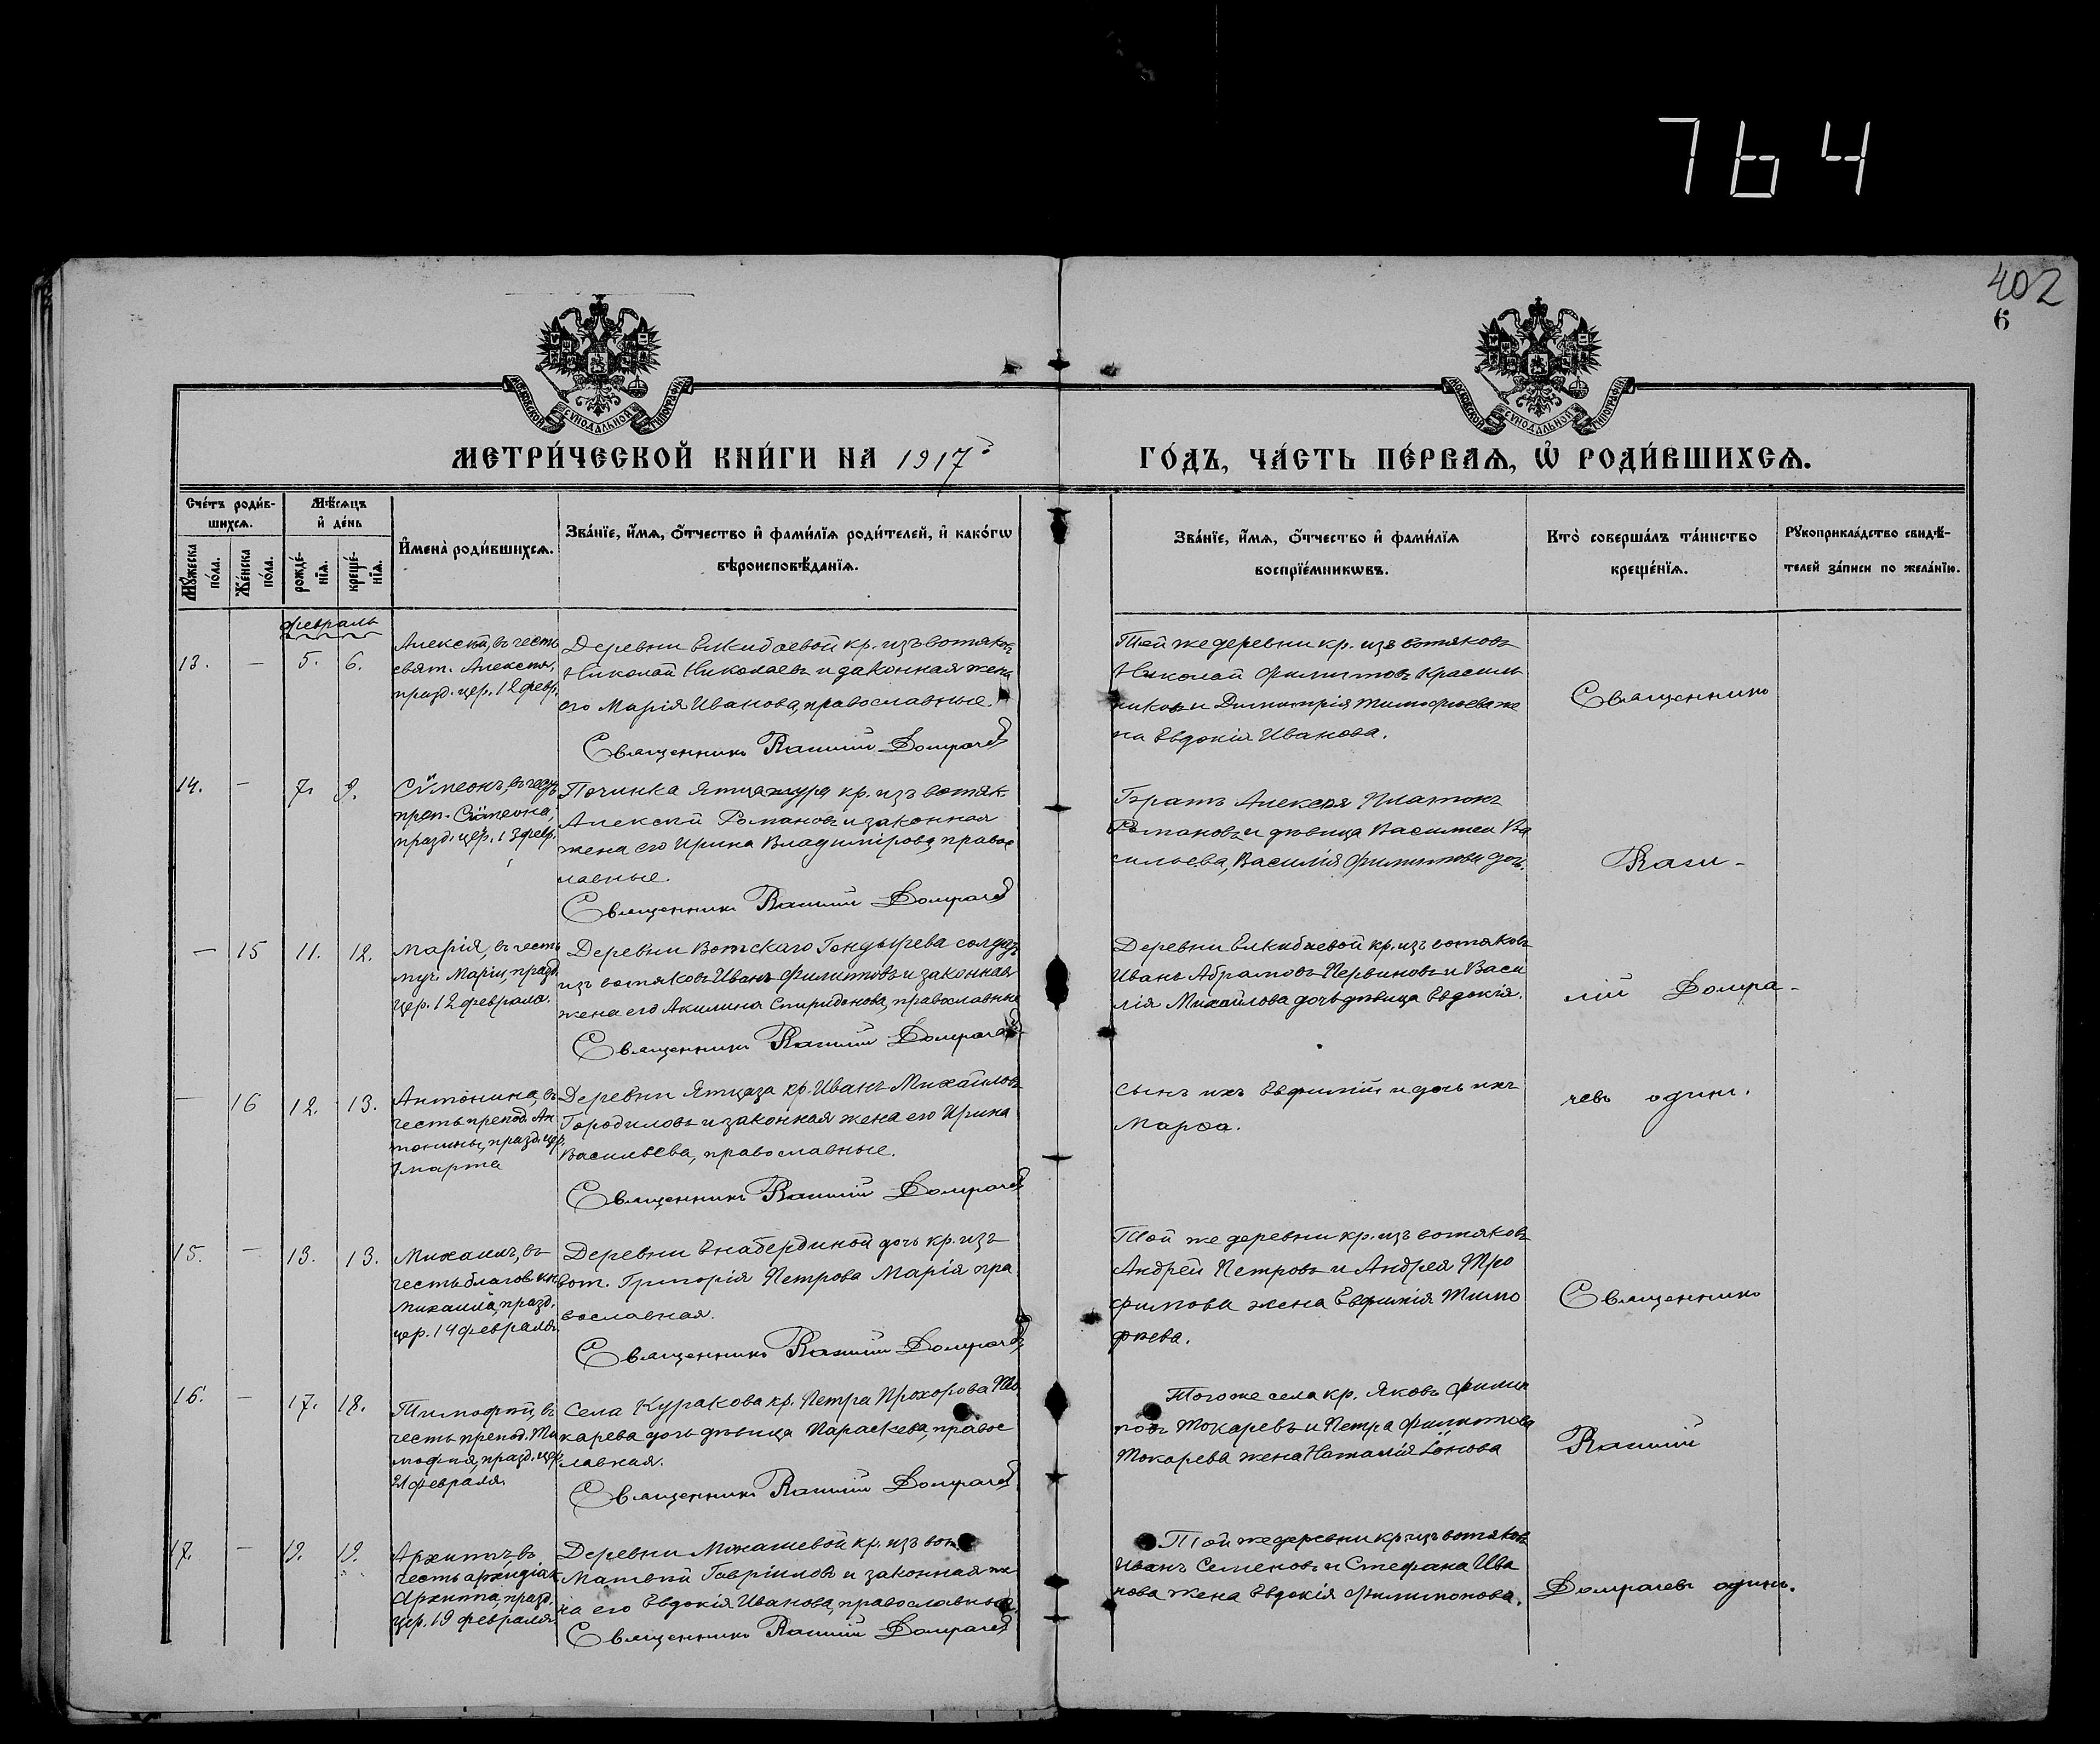 764
402
6
МОСКОВСКОЙ СѴНОДАЛЬНОЙ ТИПОГРАФІИ
МОСКОВСКОЙ СѴНОДАЛЬНОЙ ТИПОГРАФІИ
МЕТРИ́ЧЕСКОЙ КНИ́ГИ НА 1917 ГО́ДЪ, ЧА́СТЬ ПЕ́РВАѦ, Ѡ҆ РОДИ́ВШИХСѦ.
Сче́тъ роди́в-
шихсѧ.
Мѣ́сѧцъ
и҆ де́нь
Мꙋ́жеска
по́ла.
Же́нска
по́ла.
рожде́-
нїѧ.
креще́-
нїѧ.
И҆мена̀ роди́вшихсѧ.
Зва́нїе, и҆́мѧ, ѻ҆́тчество и҆ фами́лїѧ роди́телей, и҆ како́гѡ
вѣроисповѣ́данїѧ.
Зва́нїе, и҆́мѧ, ѻ҆́тчество и҆ фами́лїѧ
воспрїе́мникѡвъ.
Кто̀ соверша́лъ та́инство
креще́нїѧ.
Рꙋкоприкла́дство свидѣ́-
телей за́писи по жела́нїю.
февраль
13. — 5. 6.
Алексѣй, въ честь
свят. Алексѣя,
празд. цер. 12 февр.
Деревни Елкибаевой кр. изъ вотяковъ
Николай Николаевъ и законная жена
его Марія Иванова, православные.
Священникъ Василій Домрачев
Той же деревни кр. изъ вотяковъ
Николай Филиповъ Красиль
никовъ и Димитрія Тимофеева же
на Евдокія Иванова.
Священникъ
14. — 7. 9.
Сѵмеонъ, въ честь
преп. Сѵмеона,
празд. цер. 13 февр.
Починка кр. изъ вотяк.
Алексѣй Романовъ и законная
жена его Ирина Владимірова, правос
лавные.
Священникъ Василій Домрачев
Братъ Алексѣя Платонъ
Романовъ и дѣвица Ва
сильева, Василія Филипова дочь.
Васи-
— 15 11. 12.
Марія, въ честь
муч. Маріи, празд.
цер. 12 февраля.
Деревни Вотскаго Гондырева солдатъ
изъ вотяковъ Иванъ Филиповъ и законная
жена его Акилина Спиридонова, православные
Священникъ Василій Домрачев
Деревни Елкибаевой кр. изъ вотяковъ
Иванъ Абрамовъ Первиновъ и Васи
лія Михайлова дочь дѣвица Евдокія.
лій Домра-
— 16 12. 13.
Антонина, въ
честь препод. Ан
тонины, празд. цер.
1 марта
Деревни Ятцаза кр. Иванъ Михайловъ
Городиловъ и законная жена его Ирина
Васильева, православные.
Священникъ Василій Домрачев
Сынъ ихъ Евфимій и дочь ихъ
Марѳа.
чевъ одинъ.
15. — 13. 13.
Михаилъ, въ
честь благов. кн.
Михаила, празд.
цер. 14 февраля.
Деревни Енабердиной дочь кр. изъ
вот. Григорія Петрова Марія пра
вославная.
Священникъ Василій Домрачев
Той же деревни кр. изъ вотяковъ
Андрей Петровъ и Андрея Тро
фимова жена Евфимія Тимо
фѣева.
Священникъ
16. — 17. 18.
Тимофѣй, въ
честь препод. Ти
мофея, празд. цер.
21 февраля.
Села Куракова кр. Петра Прохорова То
карева дочь дѣвица Параскева, правос
лавная.
Священникъ Василій Домрачев
Того же села кр. Яковъ Филип
повъ Токаревъ и Петра Филипова
Токарева жена Наталія Іонова
Василій
17. — 19. 19.
Архипъ, въ
честь архидіак.
Архиппа, празд.
цер. 19 февраля.
Деревни Монашевой кр. изъ вот.
Матвѣй Гавріиловъ и законная же
на его Евдокія Иванова, православные.
Священникъ Василій Домрачев
Той же деревни кр. изъ вотяковъ
Иванъ Семеновъ и Стефана Ива
нова жена Евдокія Филимонова.
Домрачевъ одинъ.